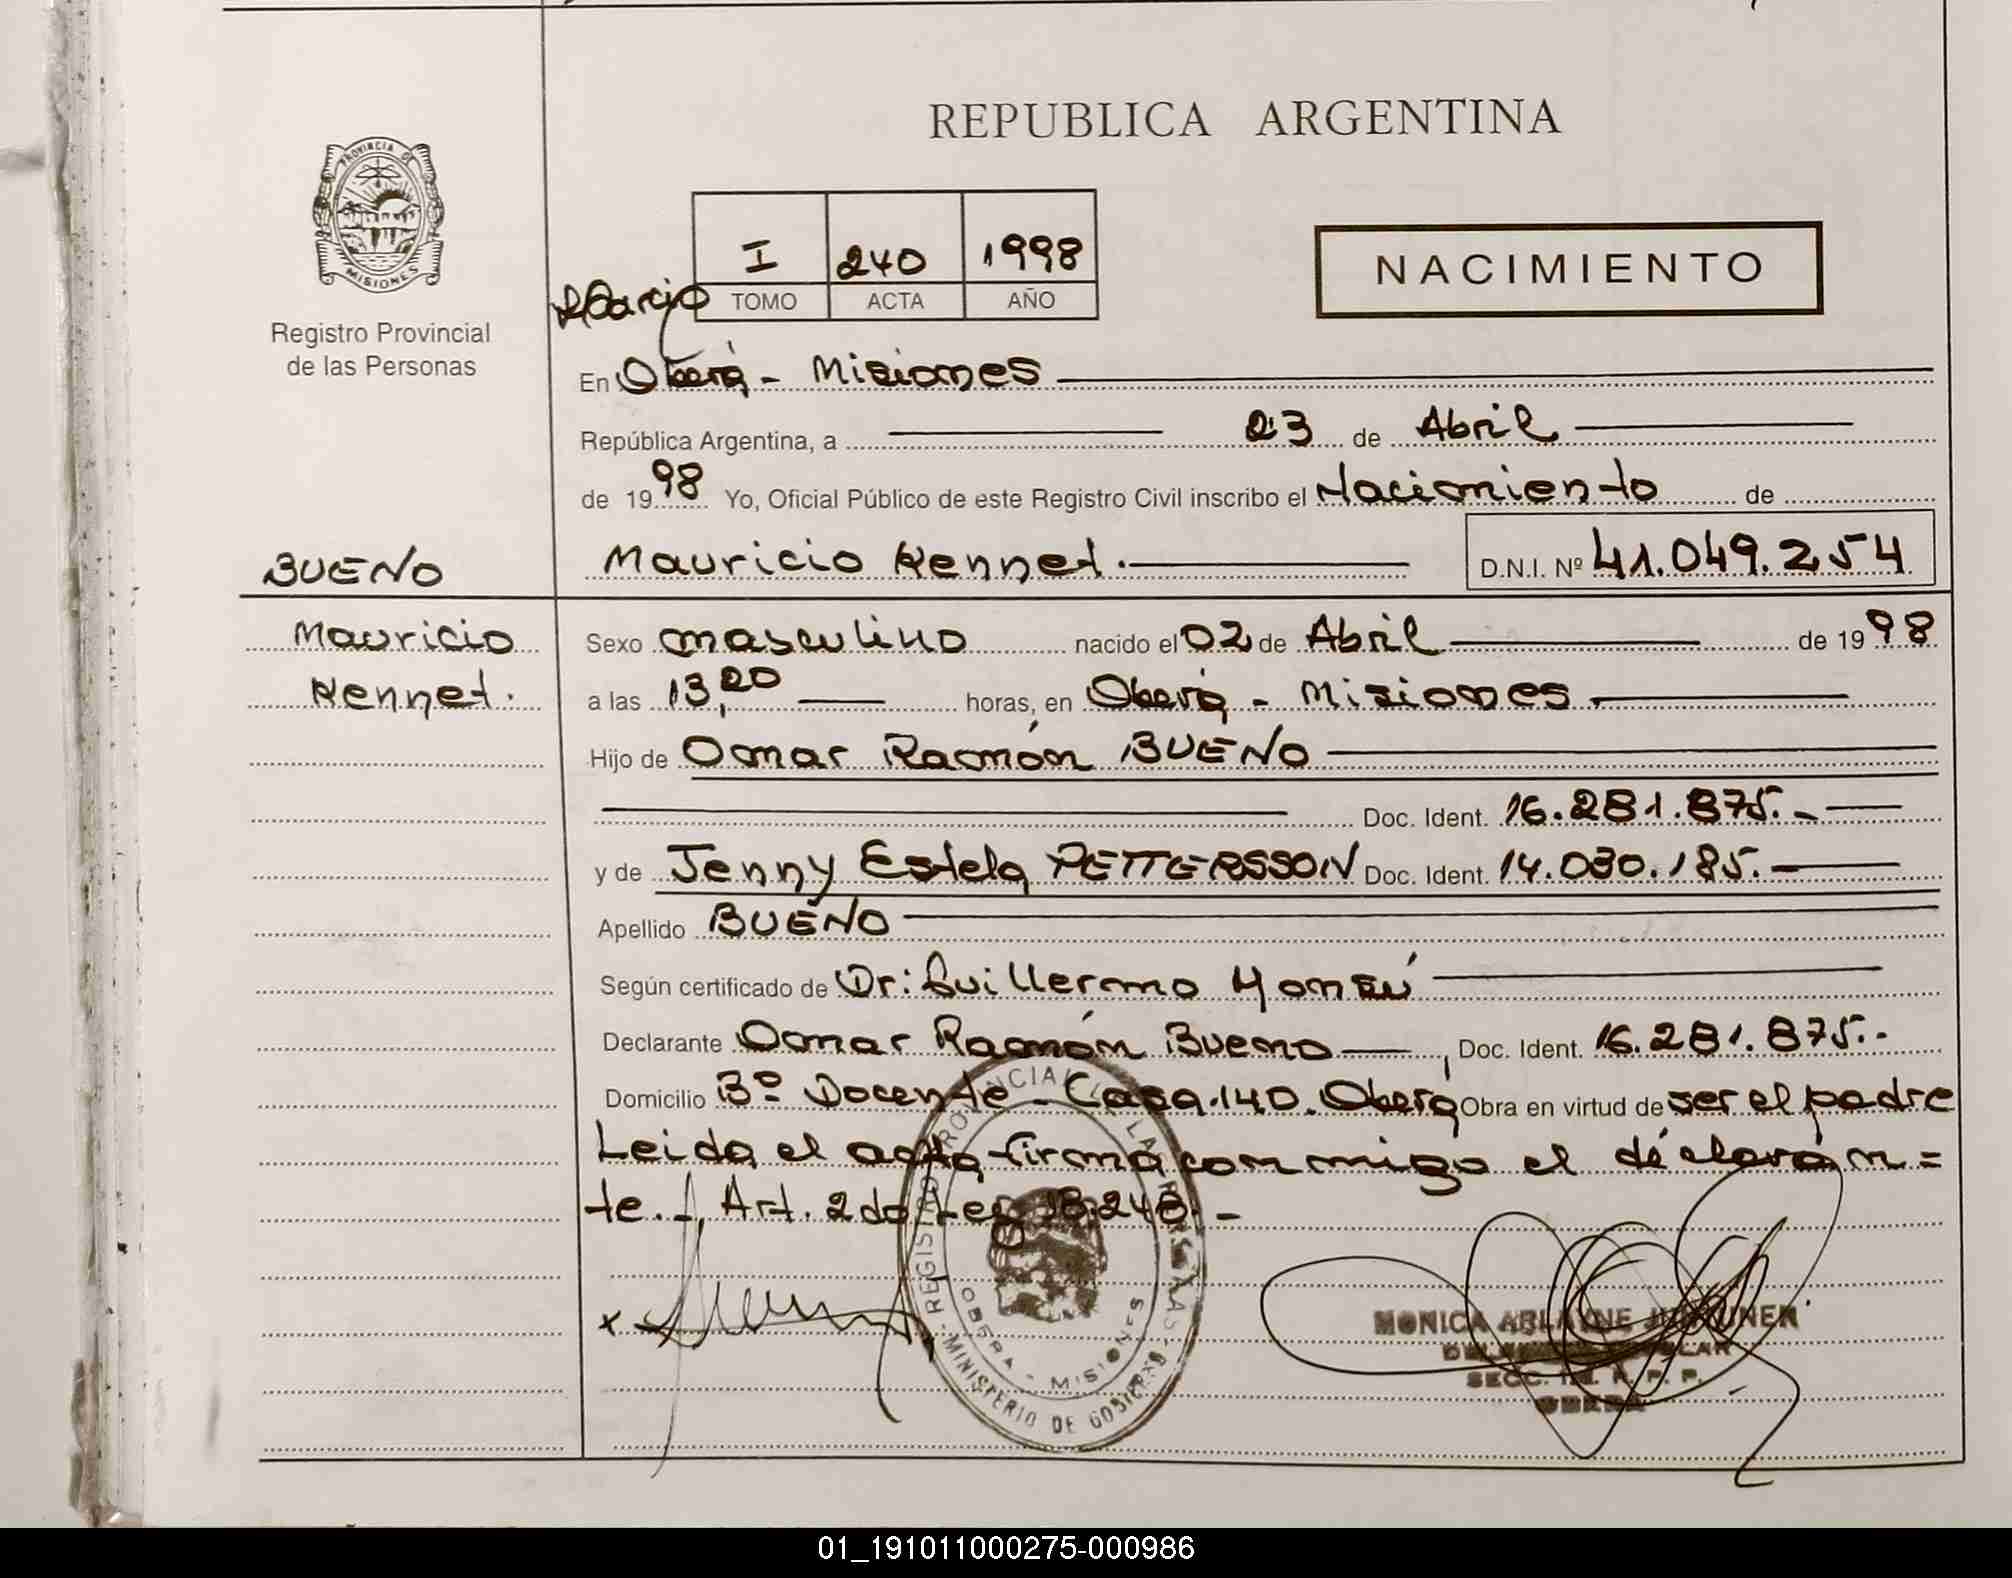 REPUBLICA ARGENTINA
PROVINCIA DE
MISIONES
Registro Provincial
de las Personas
I 240 1998
TOMO ACTA AÑO
NACIMIENTO
En Oberá - Misiones
República Argentina, a 23 de Abril
de 1998 Yo, Oficial Público de este Registro Civil inscribo el Nacimiento de
BUENO Mauricio Kennet.
D.N.I. Nº 41.049.254
Mauricio Sexo masculino nacido el 02 de Abril de 1998
Kennet. a las 13,20 horas, en Oberá - Misiones
Hijo de Omar Ramón BUENO
Doc. Ident. 16.281.875.-
y de Jenny Estela PETTERSSON Doc. Ident. 14.030.185.-
Apellido BUENO
Según certificado de Dr: Guillermo
Declarante Omar Ramón Bueno, Doc. Ident. 16.281.875.-
Domicilio Bº Docente - Casa.140. Oberá Obra en virtud de ser el padre
Leida el acta firma conmigo el declaran=
te.-, Art. 2do Ley 18.248.-
REGISTRO PROVINCIAL DE LAS PERSONAS
OBERA - MISIONES
MINISTERIO DE GOBIERNO
MONICA ARLAYNE
SECC. R. P. P.
OBERA
01_191011000275-000986